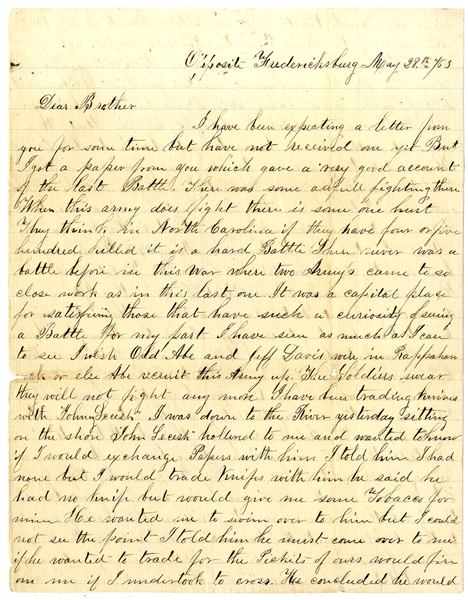 Opposite Fredericksburg May 28th /63
Dear Brother
I have been expecting a letter from
you for some time but have not received one yet But
I got a paper from you which gave a very good account
of the last Battle. There was some awfull fighting there
When this army does fight there is some one hurt
They think in North Carolina if they have four or five
hundred killed it is a hard Battle There never was a
battle before in this War where two Army's came to so
close work as in this last one It was a capital place
for satisfying those that have such a curiosity of seeing
a Battle for my part I have seen as much as I care
to see I wish Old Abe and Jeff Davis were in Rappahan
ock or else Abe recruit this Army up. The Soldiers swear
they will not fight any more I have been trading knives
with "Johny Secesh" I was down to the River yesterday sitting
on the shore "John Secesh" hollered to me and wanted to know
if I would exchange Papers with him I told him I had
none but I would trade Knifes with him he said he
had no knife but would give me some Tobacco for
mine He wanted me to swim over to him but I could
not see the point I told him he must come over to me
if he wanted to trade for the Pickits of ours would fire
on me if I undertook to cross. He concluded he would